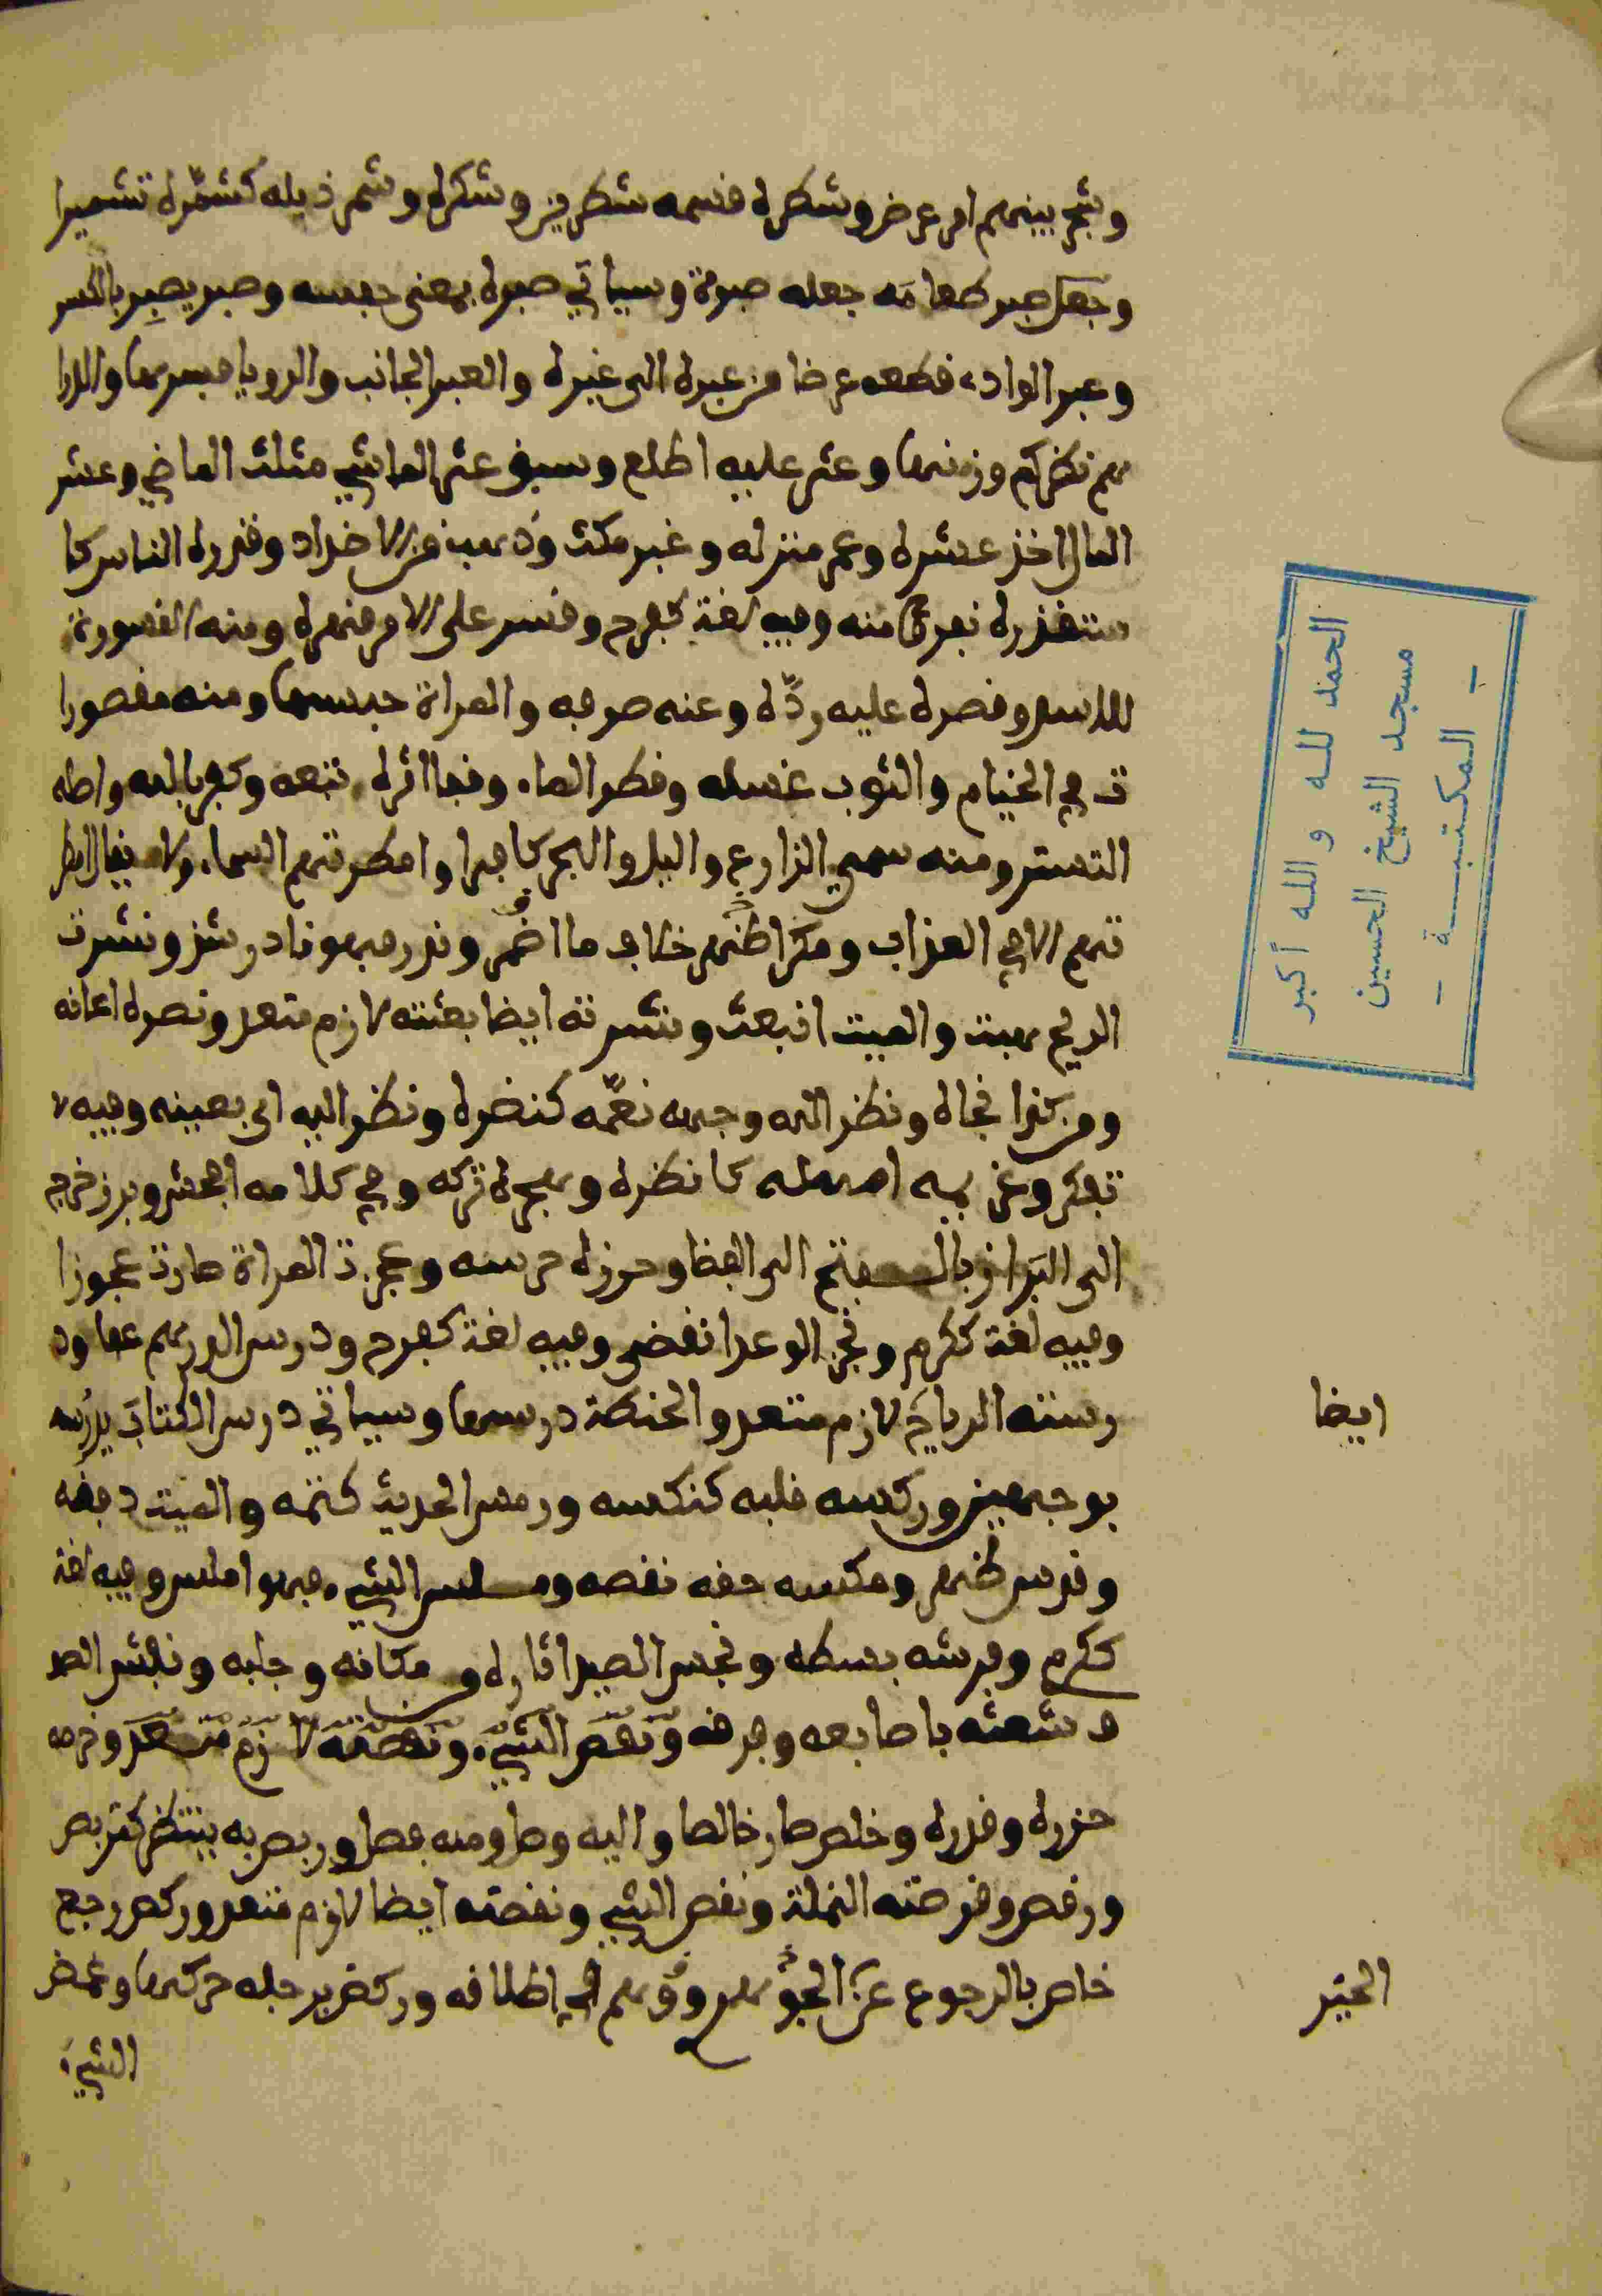 وشجر بينهم امر عرض وشطره قسمه شطرين وشكره وشمر ذيله كشمّره تشميرا
وجعل صبر طعامه جعله صبرة وسياتي صبره بمعنى حبسه وصبر يصبِر بالكسر
وعبر الواد قطعه عرضا من عبره الى غيره والعبر الجانب والرويا فسرها والدرا
هم نظركم وزنها وعثر عليه اطلع وسبق عثر الماشي مثلث الماضي وعشر
المال اخذ عشره وعمر منزله وغبر مكث وذهب من الاضداد وقذره الناس كا
ستقذره نفر منه وفيه لغة كفرح وقسر على الامر قهره ومنه القسورة
للاسد وقصره عليه ردّه وعنه صرفه والمراة حبسها ومنه مقصورا
ت في الخيام والثوب غسله وقطر الماء وقفا اثره تبعه وكفر بالله واصله
التستر ومنه سمي الزارع واليل والبحر كافرا وامطرتهم السماء ولا يقال امطر
تهم الا في العذاب ومكر اظهر خلاف ما اضمر وندر فهو نادر شذ ونشرت
الريح هبت والميت انبعث ونشرته ايضا بعثته لازم متعد ونصره اعانه
ومن كذا نجاه ونضر الله وجهه نعّمه كنضره ونظر اليه اي بعينه وفيه
تفكر وغريمه امهله كانظره وهجره تركه وفي كلامه افحش وبرز خرج
الى البَراز بالفتح الى الفضا وحرزه حرسه وعجزت المراة صارت عجوزا
وفيه لغة ككرم ونجز الوعد انقضى وفيه لغة كفرح ودرس الرسم عفا ود
رسته الرياح لازم متعد والحنطة درسها وسياتي درس الكتابَ يدرُسه
بوجهين وركسه قلبه كنكسه ورمس الحديث كتمه والميت دفنه
وفرس ظهر ومكسه حقه نقصه وملس الشيء فهو املس وفيه لغة
ككرم وفرشه بسطه ونجش الصيد اثاره من مكانه وجلبه ونفش الصو
ف شعثه باصابعه وفرقه ونقص الشيء ونقصته لازم متعد وخرصه
حزره وقدره وخلص صار خالصا واليه وصل ومنه فصل وربص به ينتظر كتربص
ورقص وقرصته النملة ونقص الشيء ونقصته ايضا لازم متعد وركض رجع
خاص بالرجوع عن الجو هم في اطلاقه وركض برجله حركها وغمض
الشيء
ايضا
الخير
الحمد لله و الله أكبر
مسجد الشيخ الحسين
- المكتبــة -